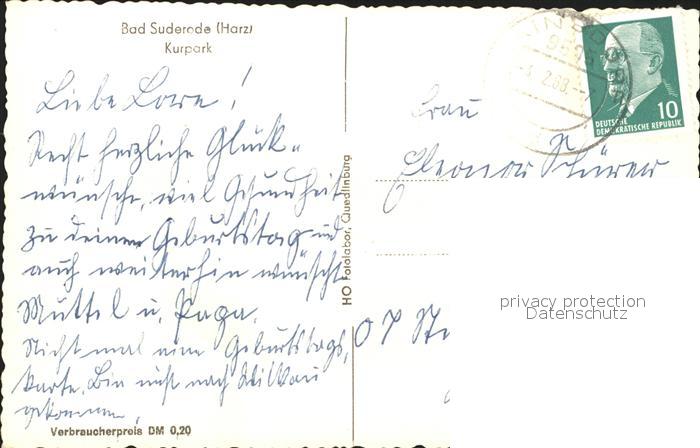 Bad Suderode (Harz)
Kurpark
Liebe Lore!
Recht herzliche Glück-
wünsche, viel Gesundheit
zu deinem Geburtstag und
auch weiterhin wünscht
Muttel u. Papa.
Nicht mal eine Geburtstags,
karte. Bin nicht nach Wilkau
gekommen.
Verbraucherpreis DM 0,20
HO Fotolabor, Quedlinburg
10
DEUTSCHE
DEMOKRATISCHE REPUBLIK
Frau
Eleonor
privacy protection
Datenschutz